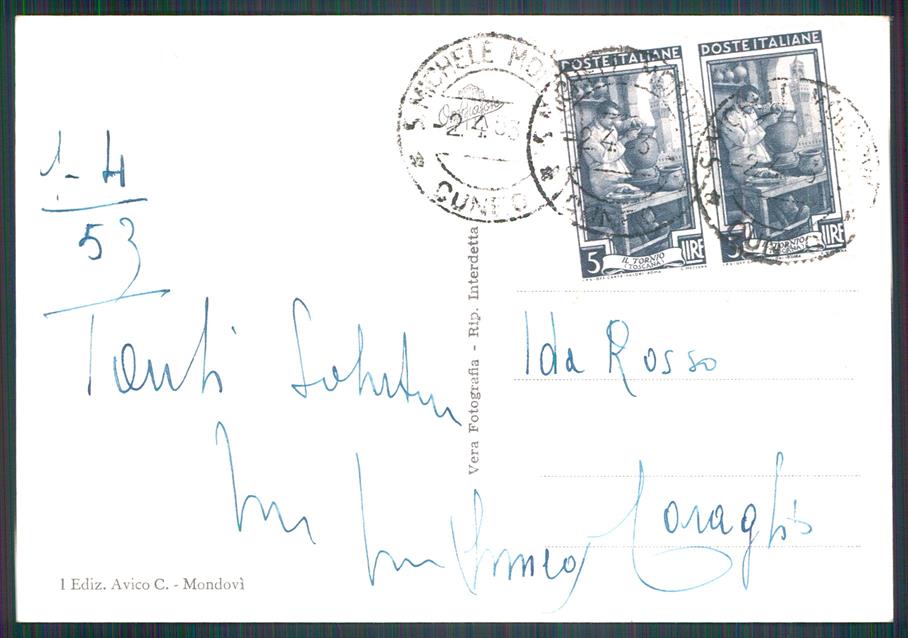 1-4
53
Tanti Saluti
Ida Rosso
Caraglio
Vera Fotografia - Rip. Interdetta
1 Ediz. Avico C. - Mondovì
S. MICHELE MON
2.4.53
CUNEO
POSTE ITALIANE
5 LIRE
IL TORNIO
(TOSCANA)
POSTE ITALIANE
5 LIRE
IL TORNIO